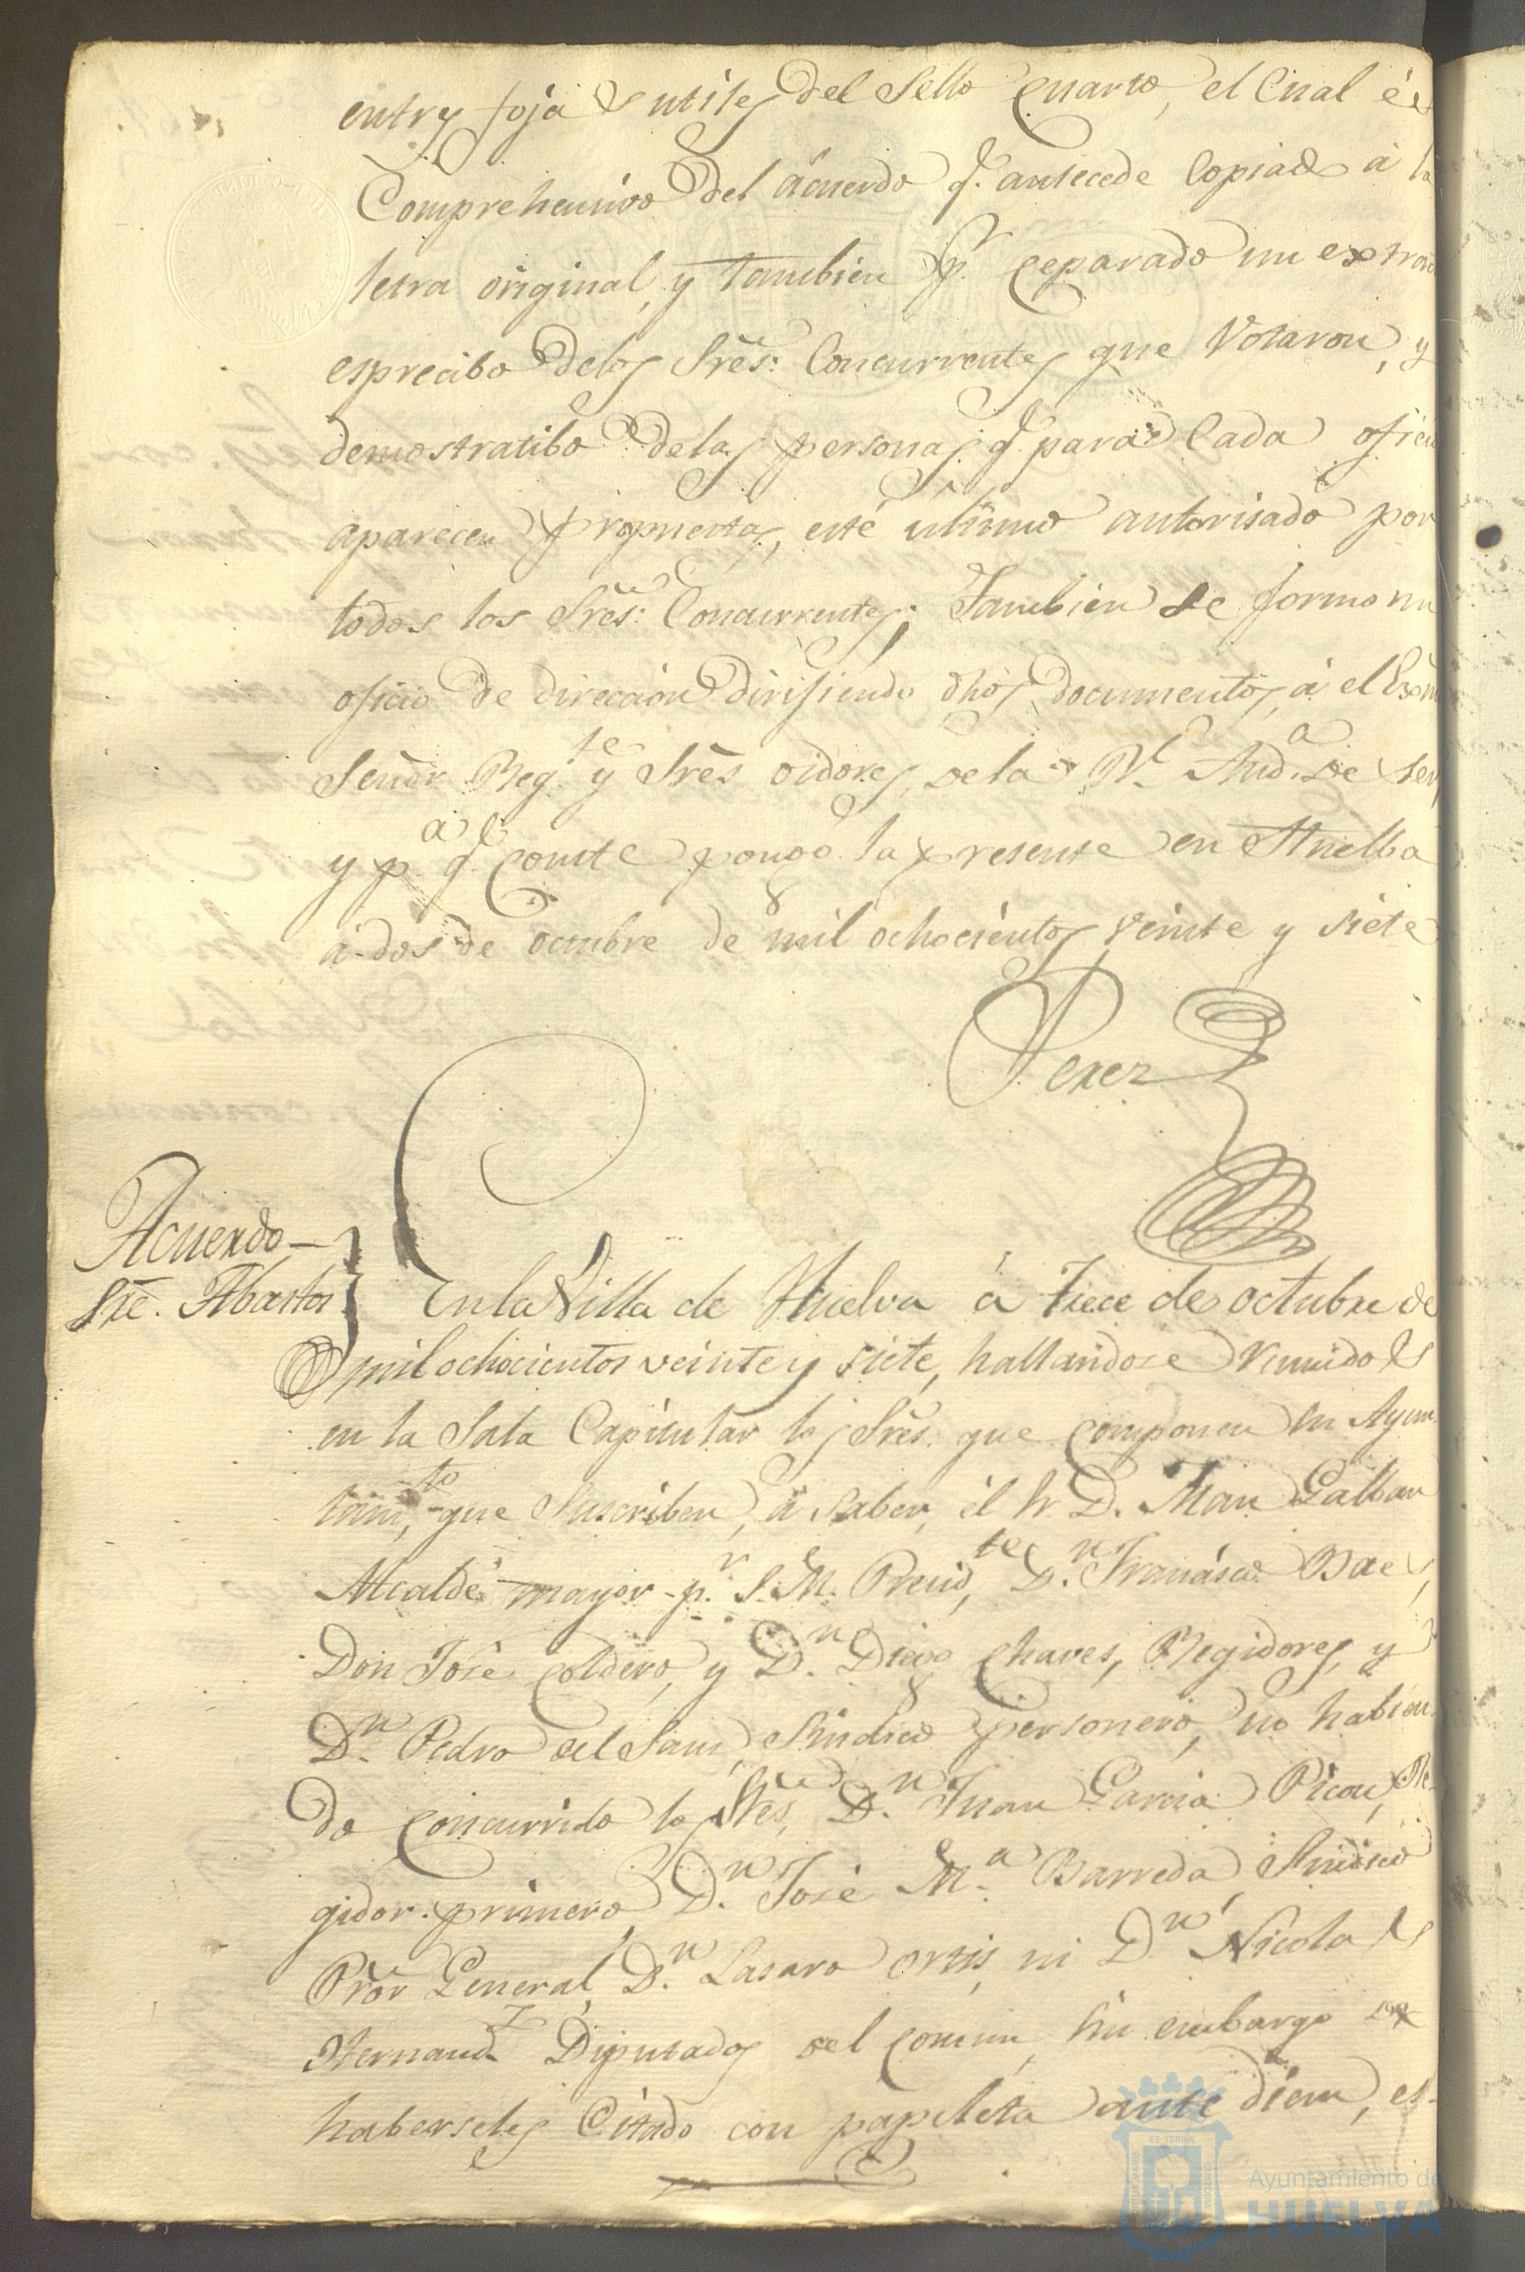 entres fojas utiles del Sello Quarto, el Cual és
Comprehensivo del ácuerdo q.e antecede Copiado à la
letra original, y tambien p.r Ceparado un extrac
esprecibo delos Sres. Concurrentes que Votaron, y
demostratibo delas personas q.e para Cada oficio
aparecen propuestas, esté ultimo autorisado por
todos los Sres. Concurrentes; Tambien se formo un
oficio de direccion dirijiendo dhos documentos, á el Exmo
Señor Reg.te y Sres oidores, de la R.l Aud.a de Sev.
y p.a q.e Conste pongo la presente en Huelba
á dos de octubre de mil ochocientos veinte y siete
Perez
Acuerdo
Sre. Abastos
En la Villa de Huelva á Trece de octubre de
mil ochocientos veinte y siete, hallandose reunidos
en la Sala Capitular los Sres. que Componen su Ayun
tam.to que Suscriben, á saber, el Sr. D. Man Galban
Alcalde mayor p.r S. M. Presid.te, D.n Francisco Baes,
Don José Coldero, y D.n Diego Chaves, Regidores, y
D.n Pedro del Sans, Sindico personero, no habien
do Concurrido los Sres, D.n Juan Garcia Picon, Re
gidor primero, D.n José M.a Barreda, Sindico
Prór General, D.n Lasaro ortis, ni D.n Nicolas
Hernand.z Diputados del Comun, sin embargo de
haberseles Citado con papeleta ante diem, es-
Ayuntamiento de
HUELVA